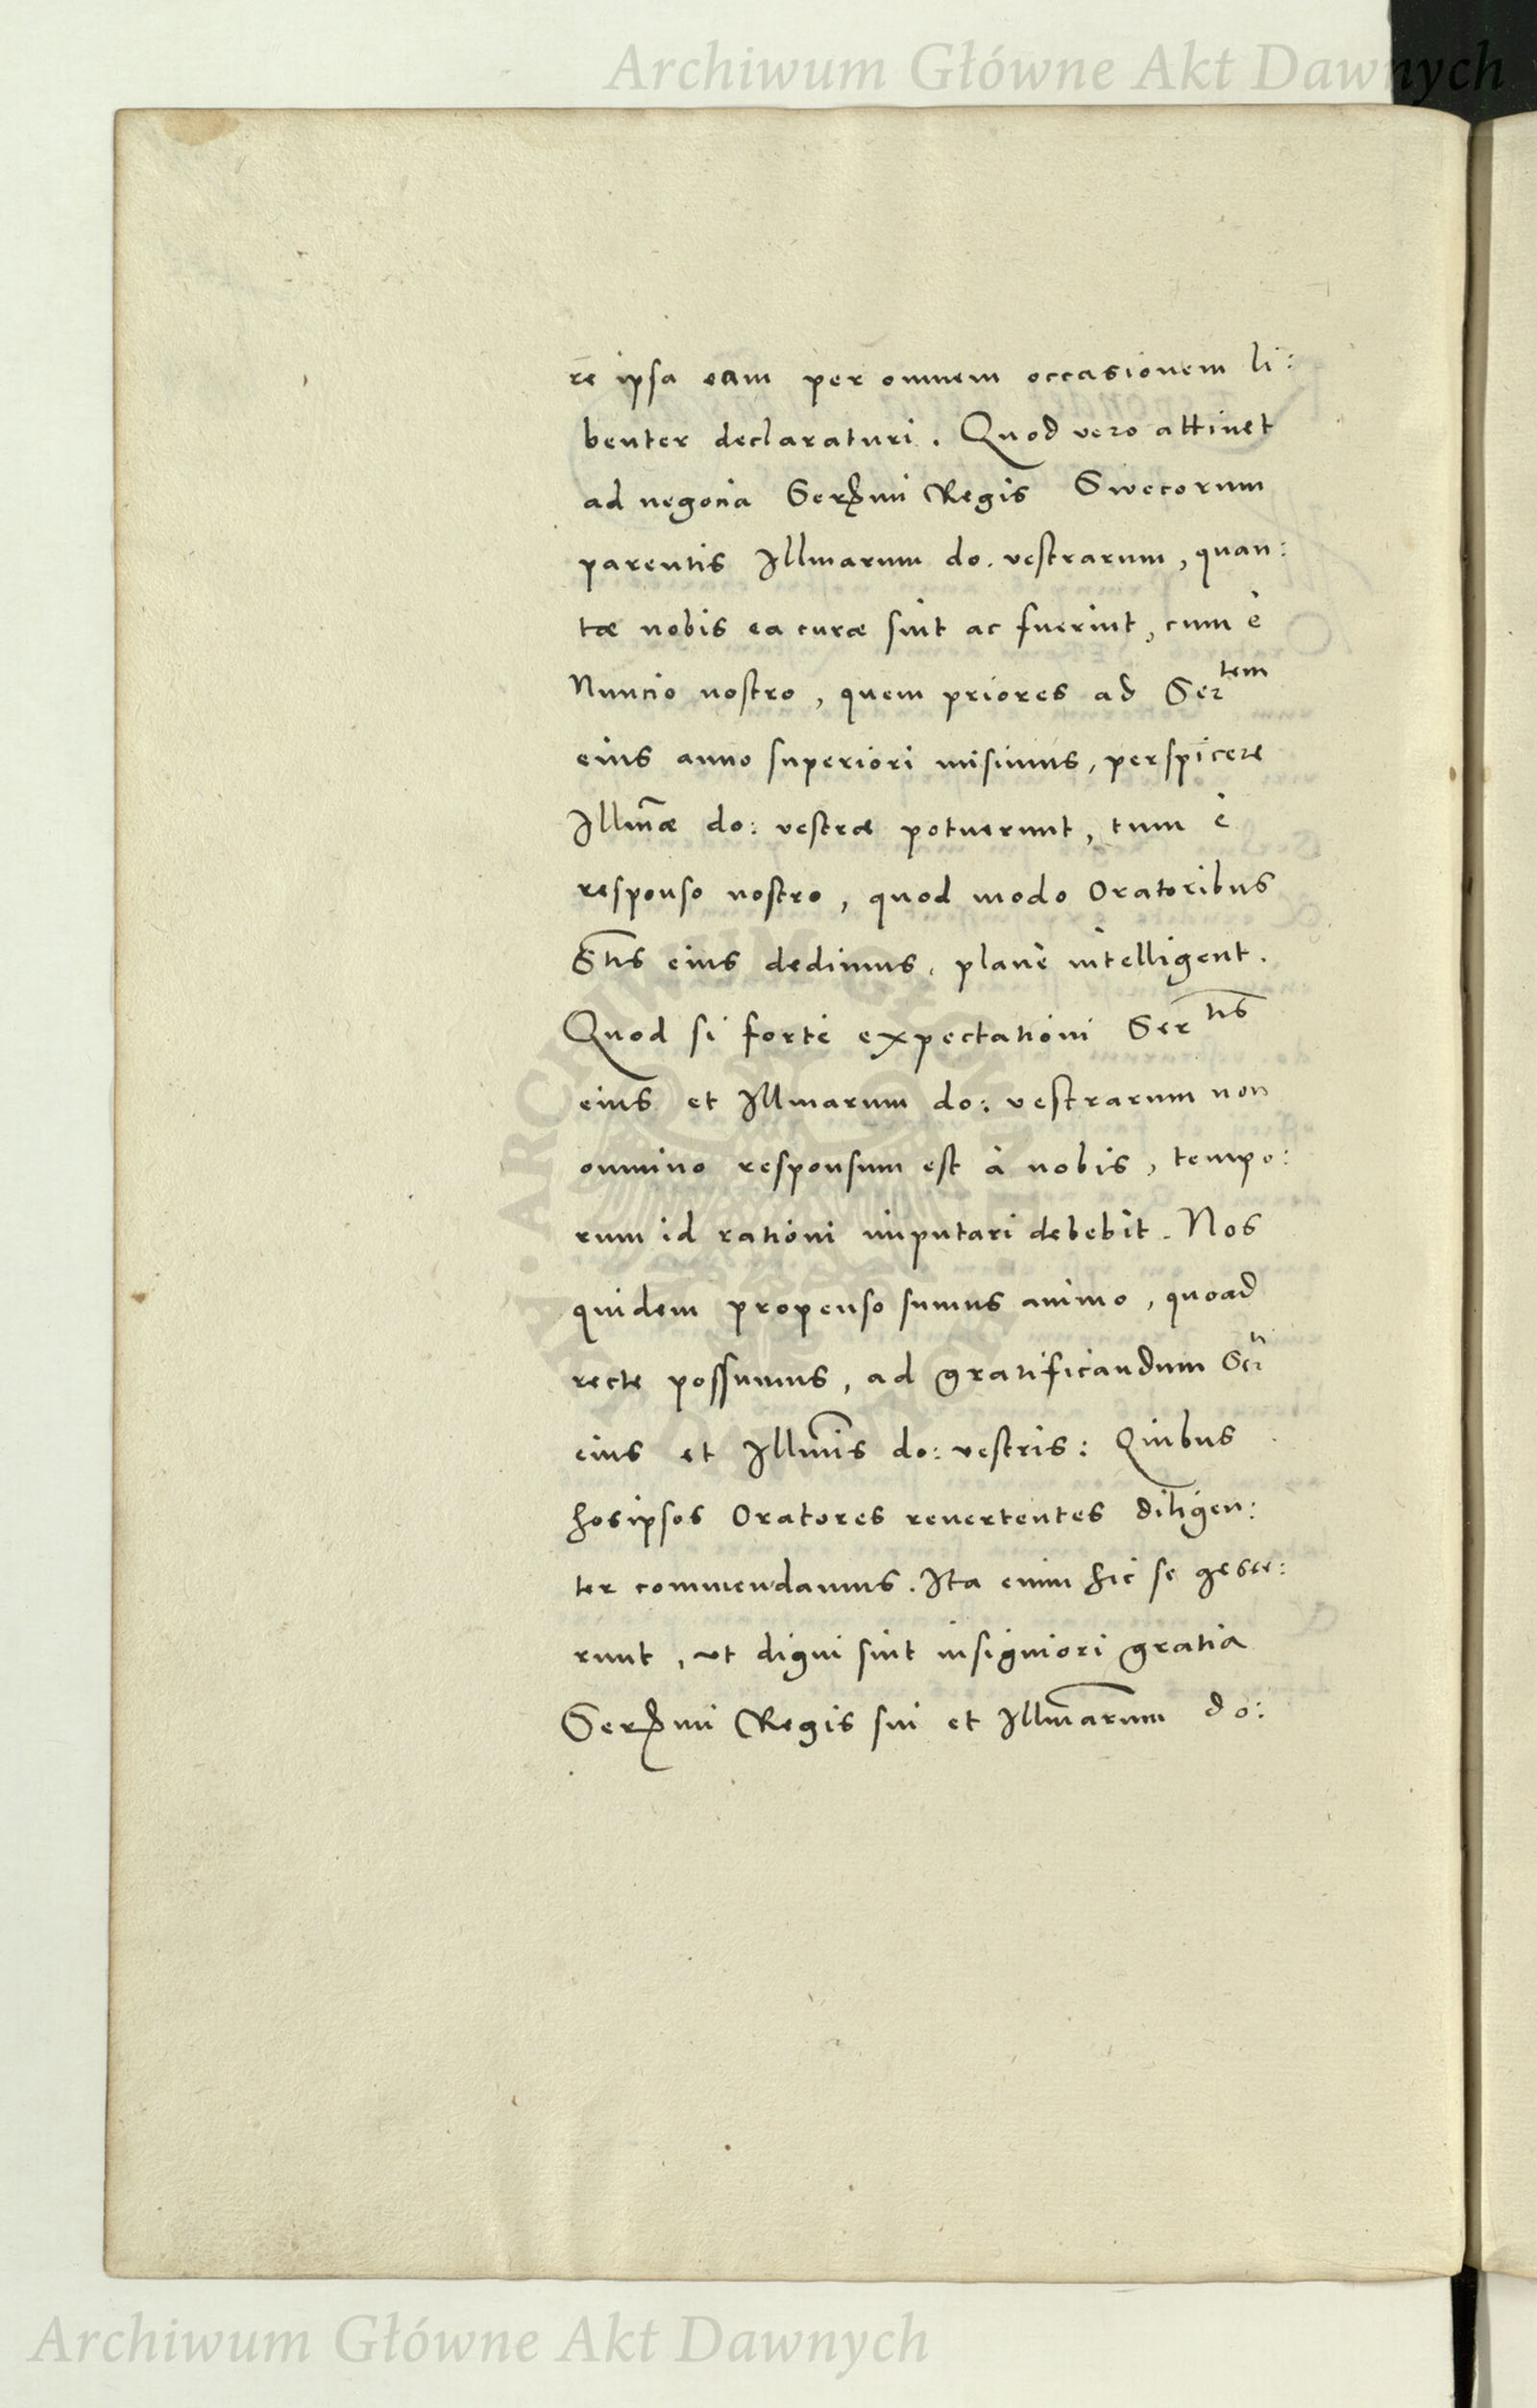 Archiwum Główne Akt Dawnych
re ipsa eam per omnem occasionem li:
benter declaraturi. Quod vero attinet
ad negocia Sermi Regis Swecorum
parentis Illmarum do. vestrarum, quan:
tæ nobis ea curæ sint ac fuerint, cum è
Nuncio nostro, quem priores ad Sertem
eius anno superiori misimus, perspicere
Illmæ do: vestræ potuerunt, tum è
responso nostro, quod modo Oratoribus
Stis eius dedimus, planè intelligent.
Quod si fortè expectationi Sertis
eius et Illmarum do: vestrarum non
omnino responsum est à nobis, tempo:
rum id rationi imputari debebit. Nos
quidem propenso sumus animo, quoad
recte possumus, ad gratificandum Serti
eius et Illmis do: vestris: Quibus
hosipsos Oratores revertentes diligen:
ter commendamus. Ita enim hic se gesse:
runt, ut digni sint insigniori gratia
Sermi Regis sui et Illmarum do:
Archiwum Główne Akt Dawnych